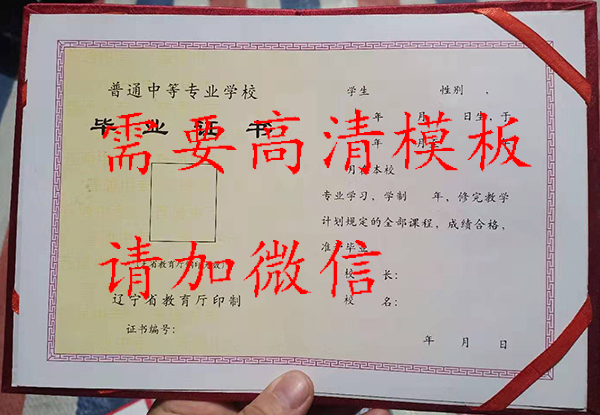 普通中等专业学校
毕业证书
辽宁省教育厅印制
证书编号：
学生 性别 ，
年 月 日生，于
年 月至
月在本校
专业学习，学制 年，修完教学
计划规定的全部课程，成绩合格，
准予毕业
校 长：
校 名：
年 月 日
需要高清模板
请加微信